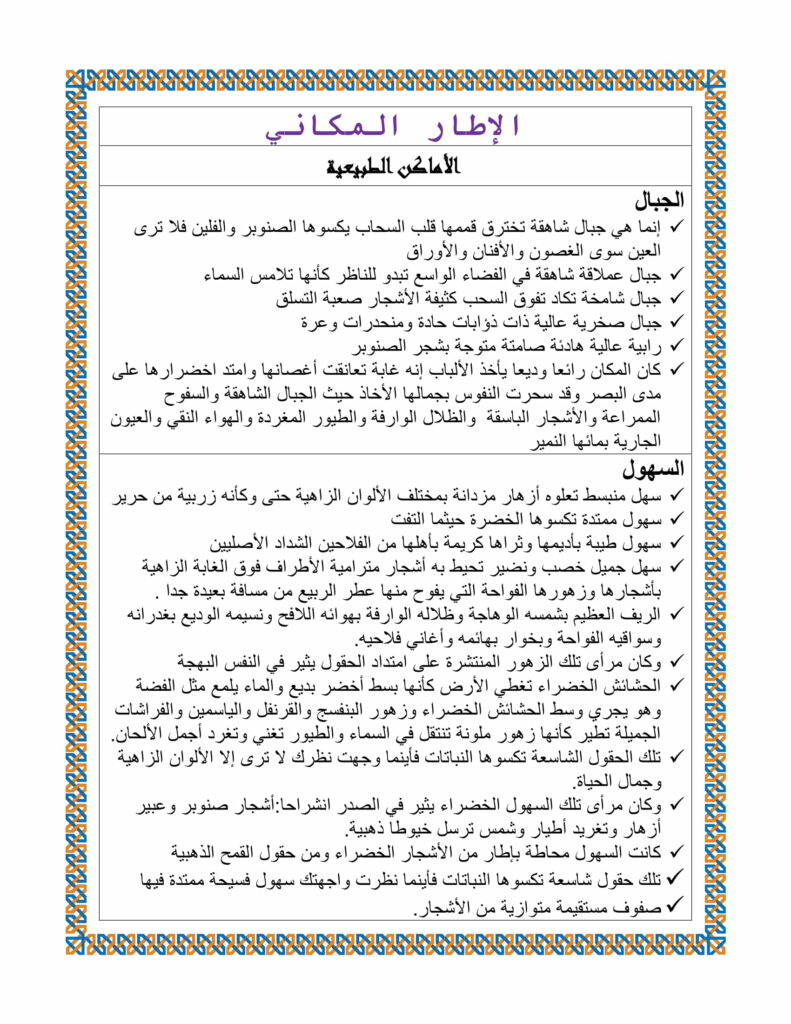 الإطار المكاني
الأماكن الطبيعية
الجبال
✓ إنما هي جبال شاهقة تخترق قممها قلب السحاب يكسوها الصنوبر والفلين فلا ترى
العين سوى الغصون والأفنان والأوراق
✓ جبال عملاقة شاهقة في الفضاء الواسع تبدو للناظر كأنها تلامس السماء
✓ جبال شامخة تكاد تفوق السحب كثيفة الأشجار صعبة التسلق
✓ جبال صخرية عالية ذات ذؤابات حادة ومنحدرات وعرة
✓ رابية عالية هادئة صامتة متوجة بشجر الصنوبر
✓ كان المكان رائعا وديعا يأخذ الألباب إنه غابة تعانقت أغصانها وامتد اخضرارها على
مدى البصر وقد سحرت النفوس بجمالها الأخاذ حيث الجبال الشاهقة والسفوح
الممراعة والأشجار الباسقة والظلال الوارفة والطيور المغردة والهواء النقي والعيون
الجارية بمائها النمير
السهول
✓ سهل منبسط تعلوه أزهار مزدانة بمختلف الألوان الزاهية حتى وكأنه زربية من حرير
✓ سهول ممتدة تكسوها الخضرة حيثما التفت
✓ سهول طيبة بأديمها وثراها كريمة بأهلها من الفلاحين الشداد الأصليين
✓ سهل جميل خصب ونضير تحيط به أشجار مترامية الأطراف فوق الغابة الزاهية
بأشجارها وزهورها الفواحة التي يفوح منها عطر الربيع من مسافة بعيدة جدا .
✓ الريف العظيم بشمسه الوهاجة وظلاله الوارفة بهوائه اللافح ونسيمه الوديع بغدرانه
وسواقيه الفواحة وبخوار بهائمه وأغاني فلاحيه.
✓ وكان مرأى تلك الزهور المنتشرة على امتداد الحقول يثير في النفس البهجة
✓ الحشائش الخضراء تغطي الأرض كأنها بسط أخضر بديع والماء يلمع مثل الفضة
وهو يجري وسط الحشائش الخضراء وزهور البنفسج والقرنفل والياسمين والفراشات
الجميلة تطير كأنها زهور ملونة تنتقل في السماء والطيور تغني وتغرد أجمل الألحان.
✓ تلك الحقول الشاسعة تكسوها النباتات فأينما وجهت نظرك لا ترى إلا الألوان الزاهية
وجمال الحياة.
✓ وكان مرأى تلك السهول الخضراء يثير في الصدر انشراحا:أشجار صنوبر وعبير
أزهار وتغريد أطيار وشمس ترسل خيوطا ذهبية.
✓ كانت السهول محاطة بإطار من الأشجار الخضراء ومن حقول القمح الذهبية
✓ تلك حقول شاسعة تكسوها النباتات فأينما نظرت واجهتك سهول فسيحة ممتدة فيها
✓ صفوف مستقيمة متوازية من الأشجار.